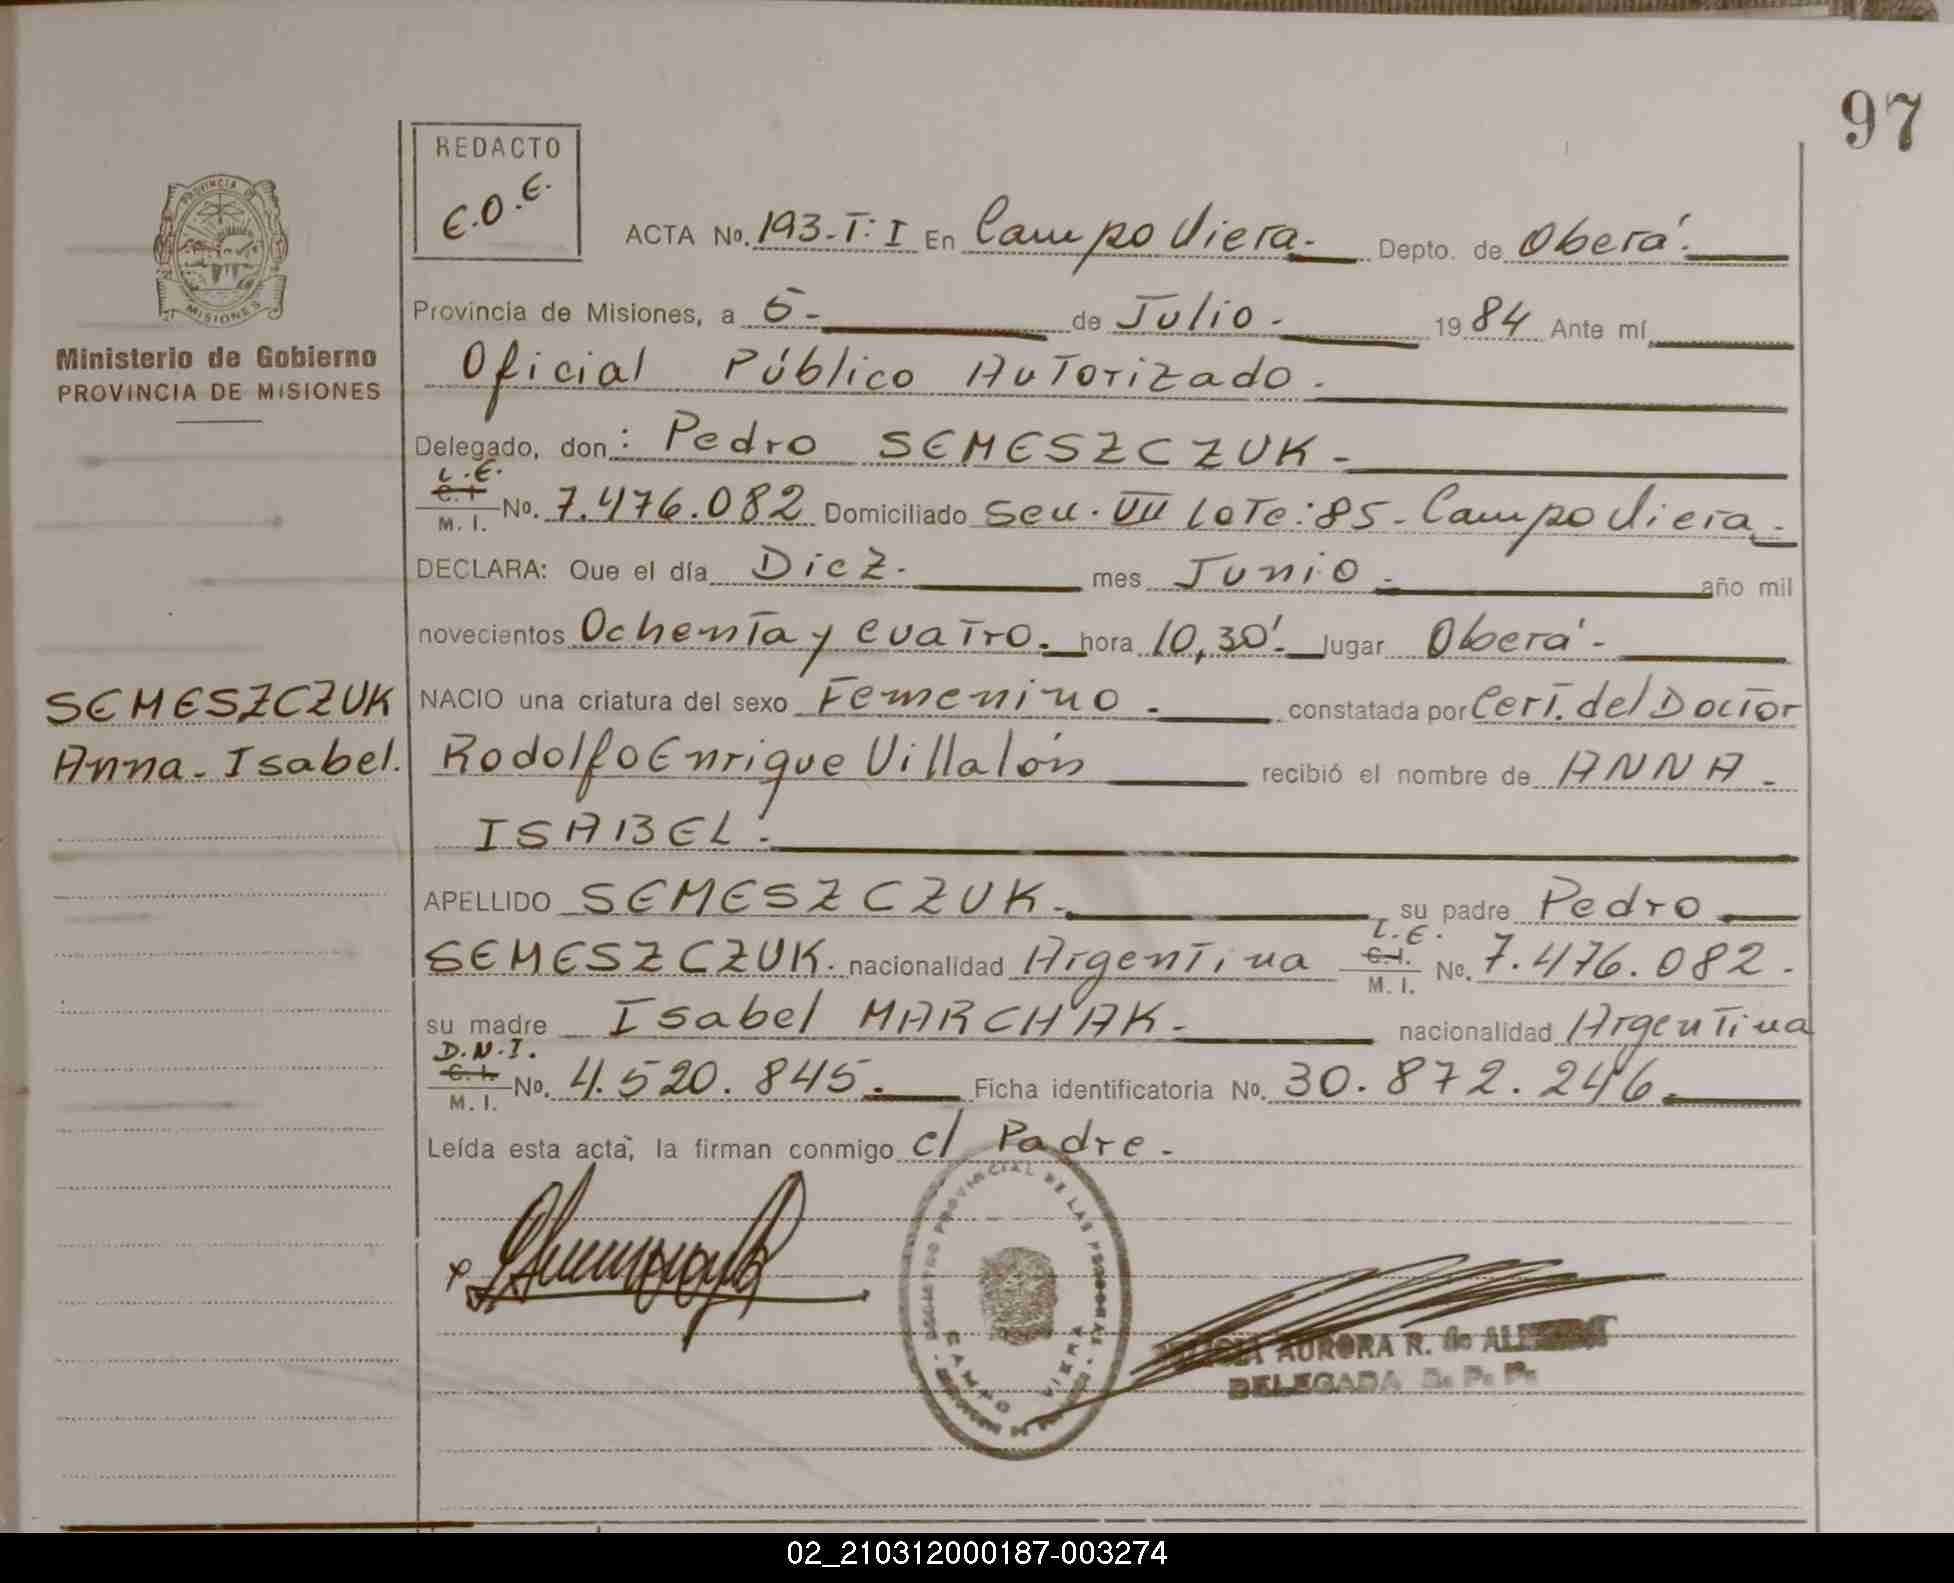 97
REDACTO
E.O.E.
ACTA No. 193-T: I En Campo Viera.- Depto. de Oberá.-
PROVINCIA DE
MISIONES
Provincia de Misiones, a 5.- de Julio.- 1984 Ante mí
Ministerio de Gobierno
PROVINCIA DE MISIONES
Oficial Público Autorizado.-
Delegado, don: Pedro SEMESZCZUK.-
L.E.
C.I.
M. I. No. 7.476.082 Domiciliado Secc. VII Lote: 85- Campo Viera.-
DECLARA: Que el día Diez.- mes Junio.- año mil
novecientos Ochenta y cuatro.- hora 10,30'.- lugar Oberá.-
SEMESZCZUK
Anna-Isabel.
NACIO una criatura del sexo Femenino.- constatada por Cert. del Doctor
Rodolfo Enrique Villalón recibió el nombre de ANNA-
ISABEL.-
APELLIDO SEMESZCZUK.- su padre Pedro
SEMESZCZUK. nacionalidad Argentina L.E. C.I. M. I. No. 7.476.082.-
su madre Isabel MARCHAK.- nacionalidad Argentina
D.N.I.
C.I.
M. I. No. 4.520.845.- Ficha identificatoria No. 30.872.246.-
Leída esta acta, la firman conmigo el Padre.-
PROVINCIAL DE LAS PERSONAS
CAMPO VIERA
AURORA R. de
DELEGADA R. P. P.
02_210312000187-003274